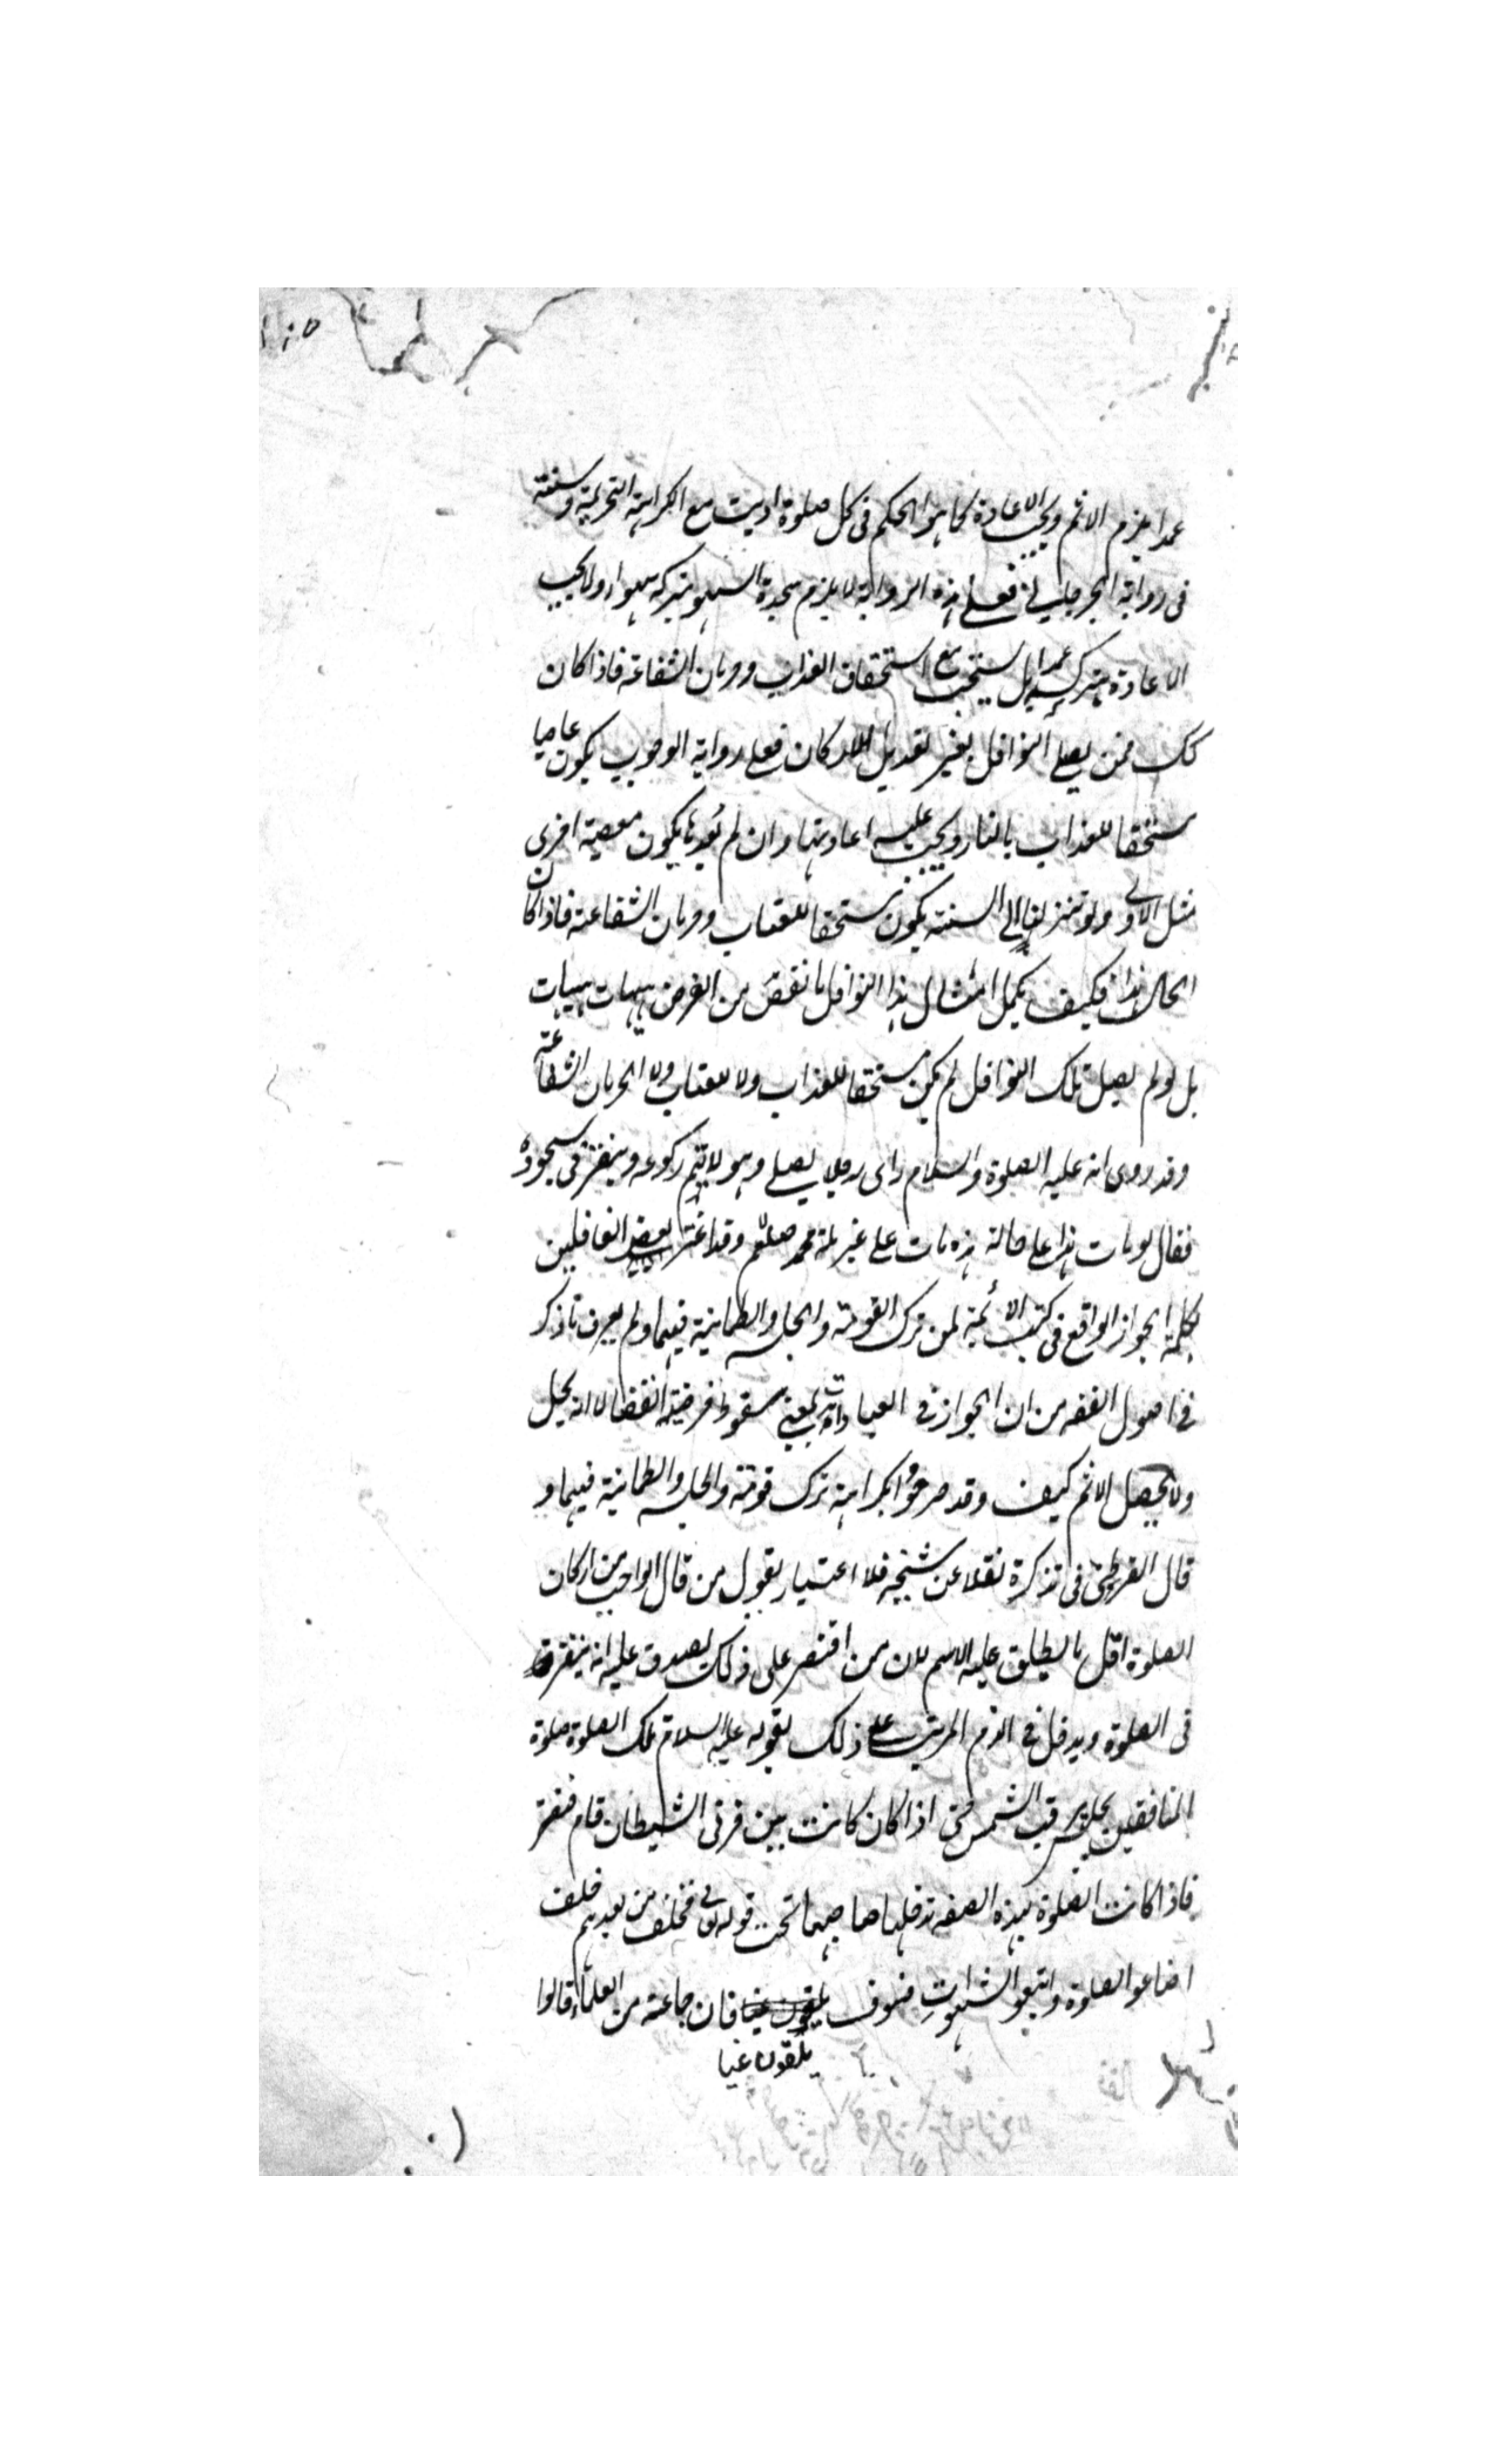 عمدا يلزم الاثم ويجب الاعادة كما هو الحكم فى كل صلوة اديت مع الكراهة التحريمة وسنة
فى رواية الجرجانى فعلى هذه الرواية لا يلزم سجدة السهو بتركه سهوا ولا يجب
الاعادة بتركه عمدا بل يستحب مع استحقاق العذاب وحرمان الشفاعة فاذا كان
كك فمن يصلى النوافل بغير تعديل الاركان فعلى رواية الوجوب يكون عاصيا
مستحقا للعذاب بالنار ويجب عليه اعادتها وان لم يُعِدها يكون معصية اخرى
مثل الاولى ولو تنزلنا الى السنة يكون مستحقا للعتاب وحرمان الشفاعة فاذا كان
الحال هذا فكيف يكمل امثال هذا النوافل ما نقص من الفرض هيهات هيهات
بل لو لم يصل تلك النوافل لم يكن مستحقا للعذاب ولا للعتاب ولا الحرمان الشفاعة
وقد روى انه عليه الصلوة والسلام راى رجلا يصلى وهو لا يتم ركوعه وينقر فى سجوده
فقال لو مات هذا على حالة هذه مات على غير ملة محمد صلعم وقد اغتر بعض الغافلين
بكلمة الجواز الواقع فى كتب الائمة لمن ترك القومة والجلسة والطمانينة فيهما ولم يعرف ما ذكر
فى اصول الفقه من ان الجواز فى العبادات بمعنى سقوط فرضية القضا لا انه يحل
ولا يحصل الاثم كيف وقد صرحوا بكراهة ترك قومة والجلسة والطمانينة فيهما و
قال القرطبى فى تذكرة نقلا عن شيخه فلا اعتبار بقول من قال الواجب من اركان
الصلوة اقل ما يطلق عليه الاسم لان من اقتصر على ذلك يصدق عليه انه ينقر
فى الصلوة ويدخل فى الذم المرتب على ذلك بقوله عليه السلام تلك الصلوة صلوة
المنافقين يجلس يرقب الشمس حتى اذا كان كانت بين قرنى الشيطان قام فنقر
فاذا كانت الصلوة بهذه الصفه تدخل صاحبها تحت قوله تعالى فخلف من بعدهم خلف
اضاعوا الصلوة واتبعوا الشهوات فسوف يلقون غيا فان جماعة من العلماء قالوا
يلقون غيا